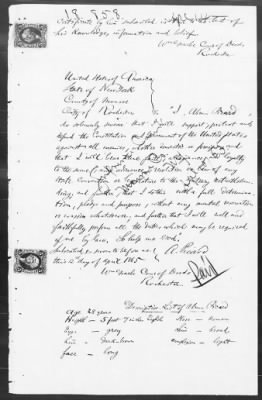 Certificate by him subscribed is true to the best of
his knowledge, information and belief.
Comr of Deeds
Rochester
United States of America
State of New York
County of Monroe
City of Rochester
I, Alvan Beard
do solemnly swear that I will support, protect and
defend the Constitution and Government of the United States
against all enemies, whether domestic or foreign, and
that I will bear true faith, allegiance and loyalty
to the same, any ordinance, resolution or law of any
State Convention or Legislature to the contrary notwithstan-
ding, and further that I do this with a full determina-
tion, pledge and purpose, without any mental reservation
or evasion whatsoever, and further that I will well and
faithfully perform all the duties which may be required
of me by law, So help me God
A. Beard
this day of April 1865
Comr of Deeds
Rochester
Descriptive List of Alvan Beard
Age 28 years
Height 5 feet Nose
Eyes grey
Hair Complexion light
Face long